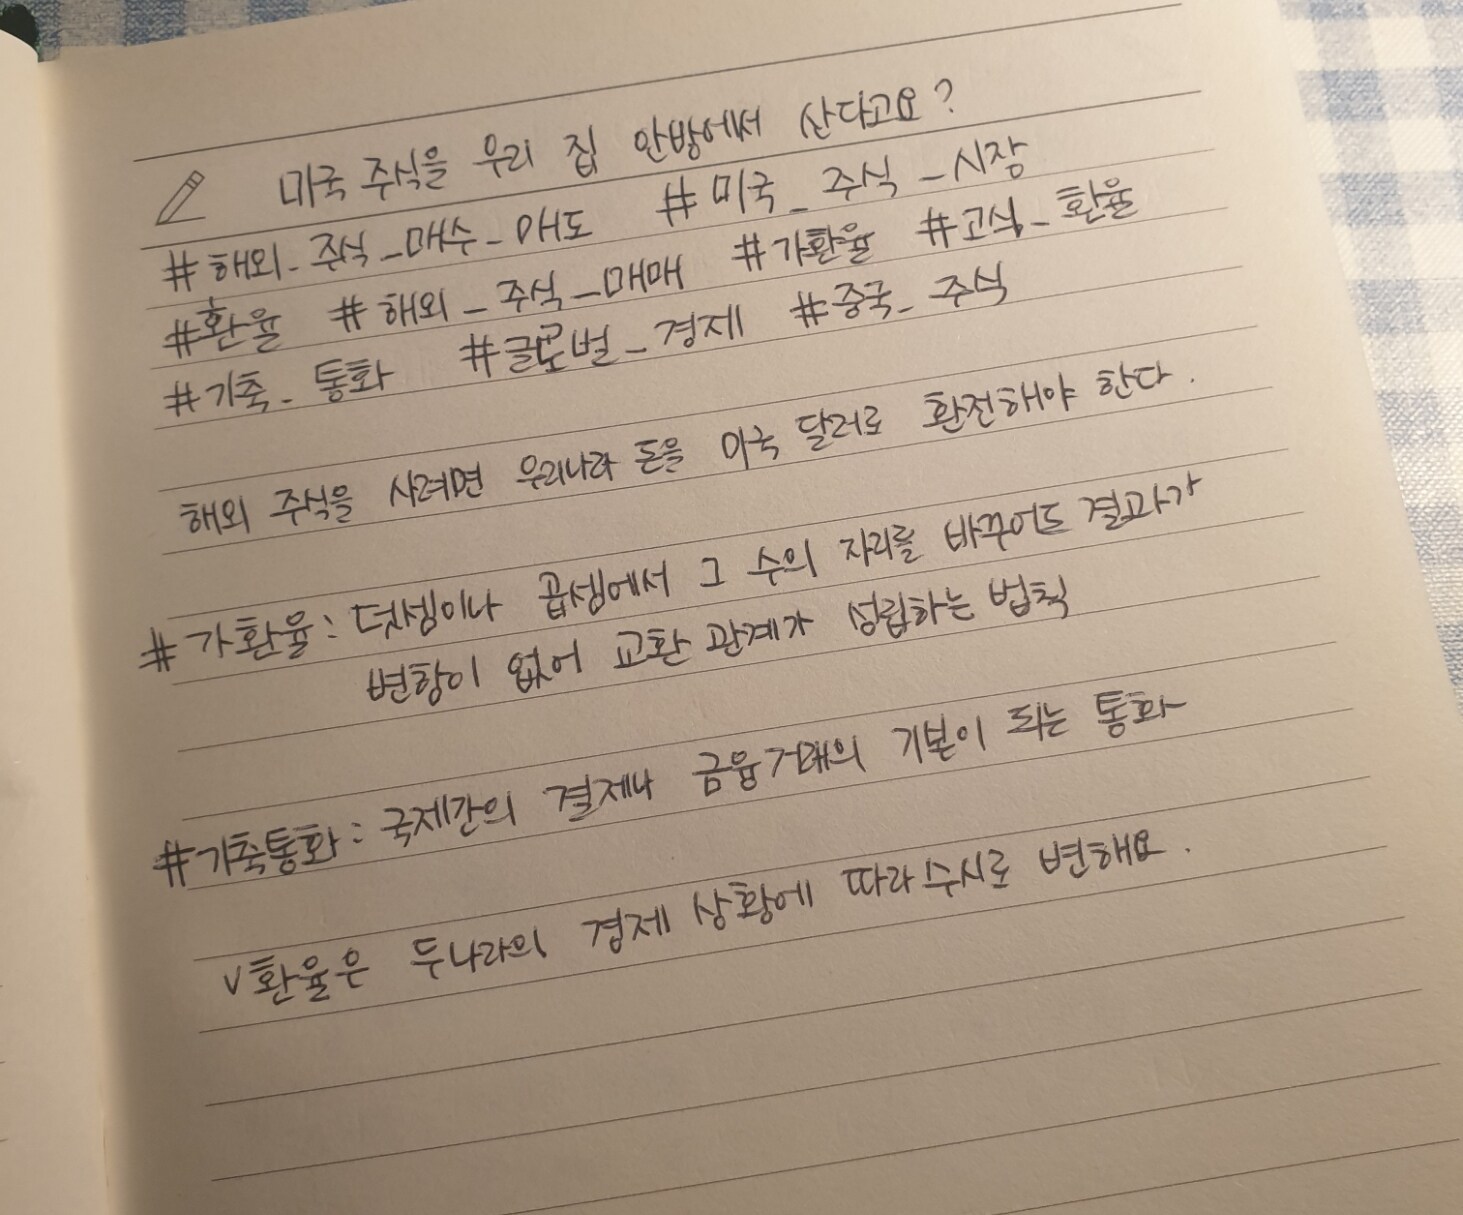 미국 주식을 우리 집 안방에서 산다고요?
#해외_주식_매수_매도 #미국_주식_시장
#환율 #해외_주식_매매 #가환율 #고시_환율
#기축_통화 #글로벌_경제 #중국_주식
해외 주식을 사려면 우리나라 돈을 미국 달러로 환전해야 한다.
#가환율: 덧셈이나 곱셈에서 그 수의 자리를 바꾸어도 결과가
변함이 없어 교환 관계가 성립하는 법칙
#기축통화: 국제간의 결제나 금융거래의 기본이 되는 통화
V환율은 두나라의 경제 상황에 따라 수시로 변해요.